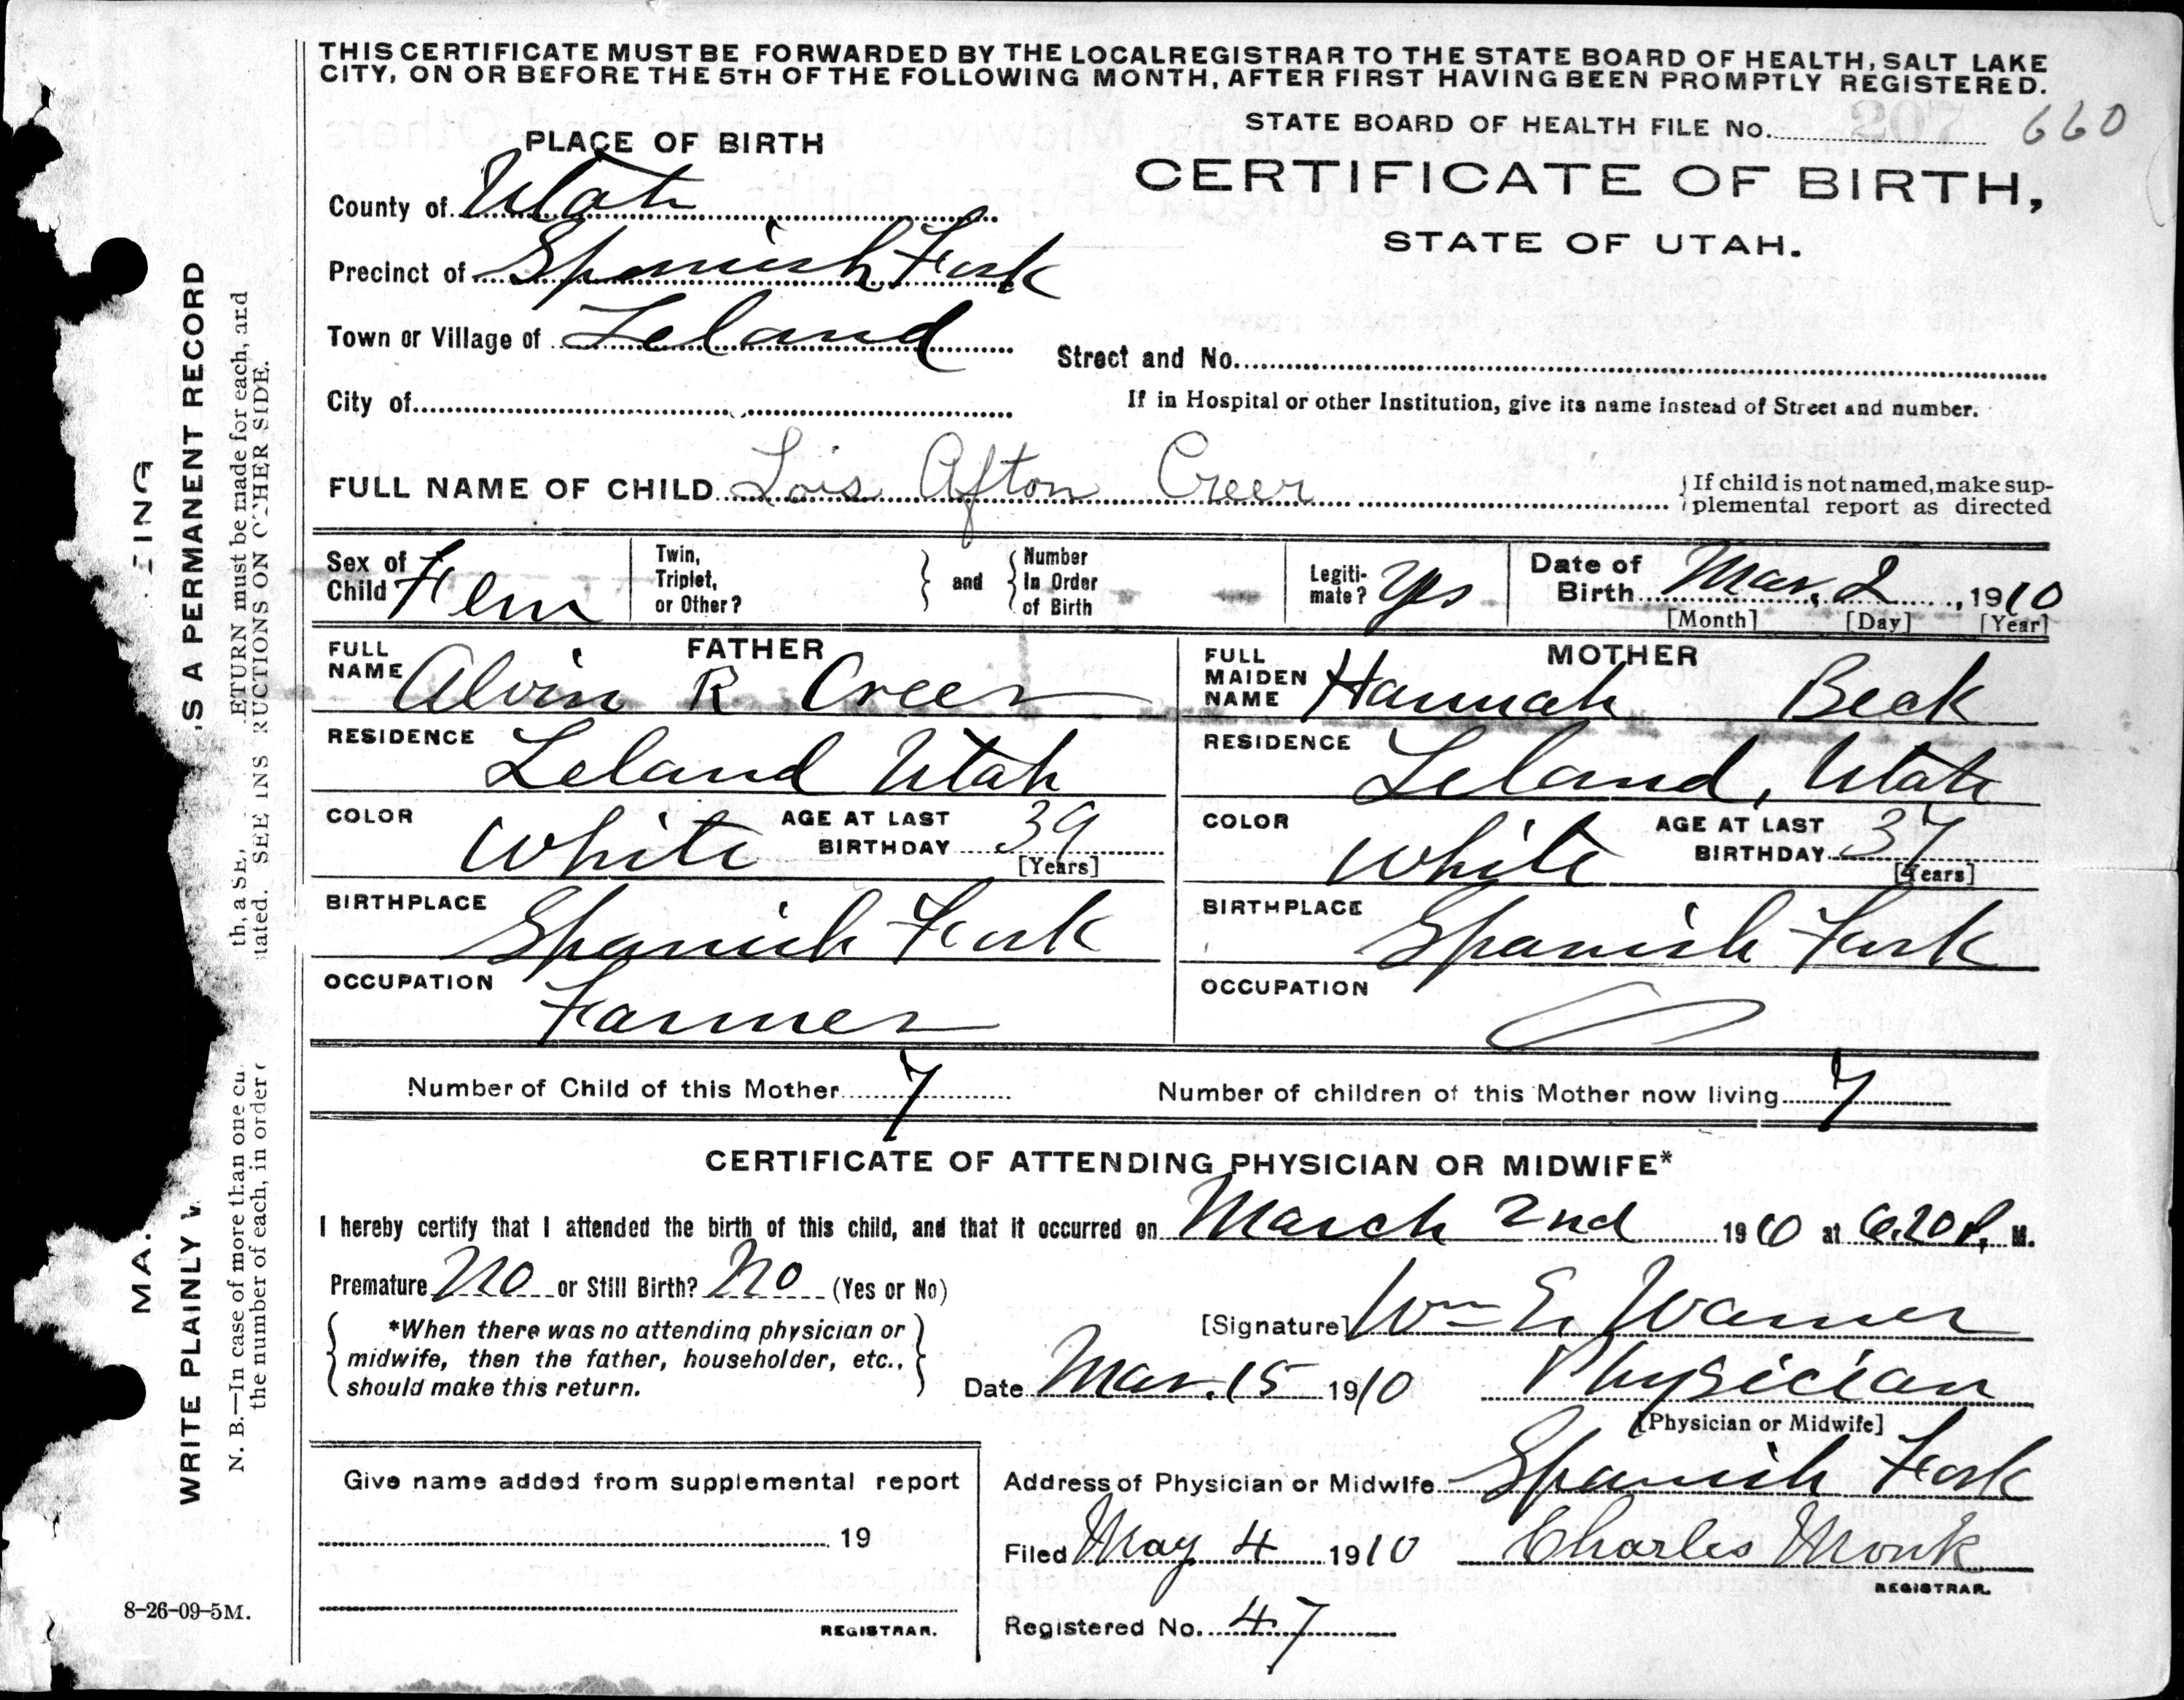 THIS CERTIFICATE MUST BE FORWARDED BY THE LOCAL REGISTRAR TO THE STATE BOARD OF HEALTH, SALT LAKE
CITY, ON OR BEFORE THE 5TH OF THE FOLLOWING MONTH, AFTER FIRST HAVING BEEN PROMPTLY REGISTERED.
STATE BOARD OF HEALTH FILE No. 207 660
PLACE OF BIRTH
CERTIFICATE OF BIRTH,
STATE OF UTAH.
County of Utah
Precinct of Spanish Fork
Town or Village of Leland
Street and No.
City of
If in Hospital or other Institution, give its name instead of Street and number.
FULL NAME OF CHILD Lois Afton Creer
If child is not named, make sup-
plemental report as directed
Sex of Child Fem
Twin, Triplet, or Other?
and
Number In Order of Birth
Legiti-mate? Yes
Date of Birth Mar. 2, 1910
[Month] [Day] [Year]
FATHER
FULL NAME Alvin R Creer
MOTHER
FULL MAIDEN NAME Hannah Beck
RESIDENCE Leland Utah
RESIDENCE Leland, Utah
COLOR White AGE AT LAST BIRTHDAY 39 [Years]
COLOR White AGE AT LAST BIRTHDAY 37 [Years]
BIRTHPLACE Spanish Fork
BIRTHPLACE Spanish Fork
OCCUPATION Farmer
OCCUPATION
Number of Child of this Mother 7 Number of children of this Mother now living 7
CERTIFICATE OF ATTENDING PHYSICIAN OR MIDWIFE*
I hereby certify that I attended the birth of this child, and that it occurred on March 2nd 1910 at 6.20 P. M.
Premature No or Still Birth? No (Yes or No)
*When there was no attending physician or
midwife, then the father, householder, etc.,
should make this return.
[Signature] Wm E. Warner
Date Mar. 15 1910 Physician
[Physician or Midwife]
Give name added from supplemental report
19
REGISTRAR.
Address of Physician or Midwife Spanish Fork
Filed May 4 1910 Charles Monk
REGISTRAR.
Registered No. 47
8-26-09-5M.
MA
ING
WRITE PLAINLY
IS A PERMANENT RECORD
N. B.—In case of more than one
th, a RETURN must be made for each, and
the number of each, in order
tated. SEE INS RUCTIONS ON OTHER SIDE.